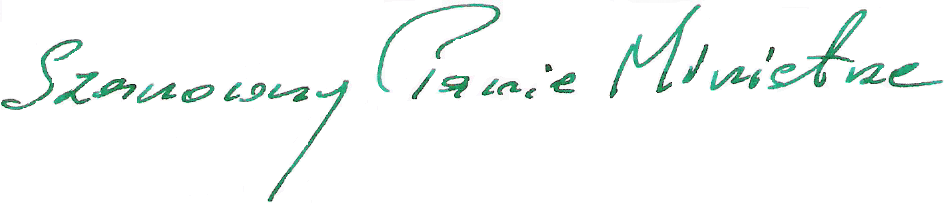 Szanowny Panie Ministrze